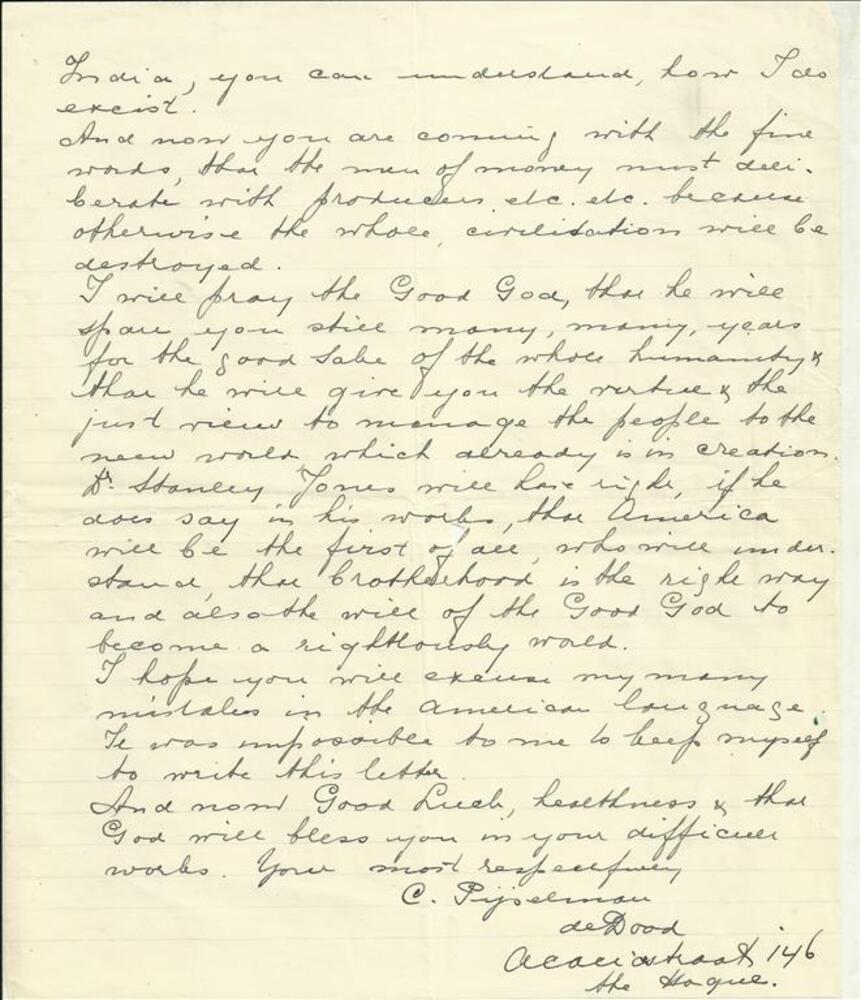 India, you can understand, how I do
excist.
And now you are coming with the fine
words, that the men of money must deli-
berate with producers etc. etc. because
otherwise the whole civilisation will be
destroyed.
I will pray the Good God, that he will
spare you still many, many, years
for the good sake of the whole humanity &
that he will give you the vertue & the
just view to manage the people to the
neew world which already is in creation.
Dr. Stanley Jones will have right, if he
does say in his works, that America
will be the first of all, who will under-
stand, that brotherhood is the right way
and also the will of the Good God to
become a rightlously world.
I hope you will excuse my many
mistakes in the american language.
It was impossible to me to keep myself
to write this letter.
And now Good Luck, healthness & that
God will bless you in your difficult
works. Your most respectfully
C. Pijselman
de Dood
Acaciastraat 146
the Hague.